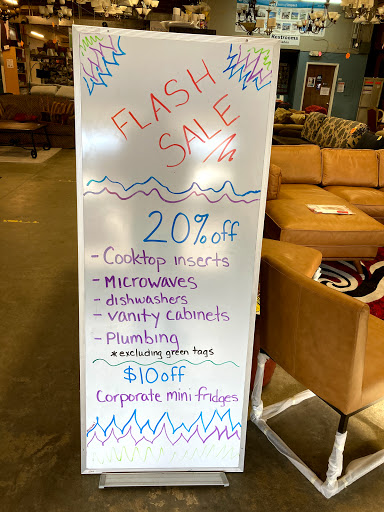 Restrooms
FLASH
SALE
20% off
- Cooktop inserts
- Microwaves
- dishwashers
- vanity cabinets
- Plumbing
*excluding green tags
$10 off
Corporate mini fridges